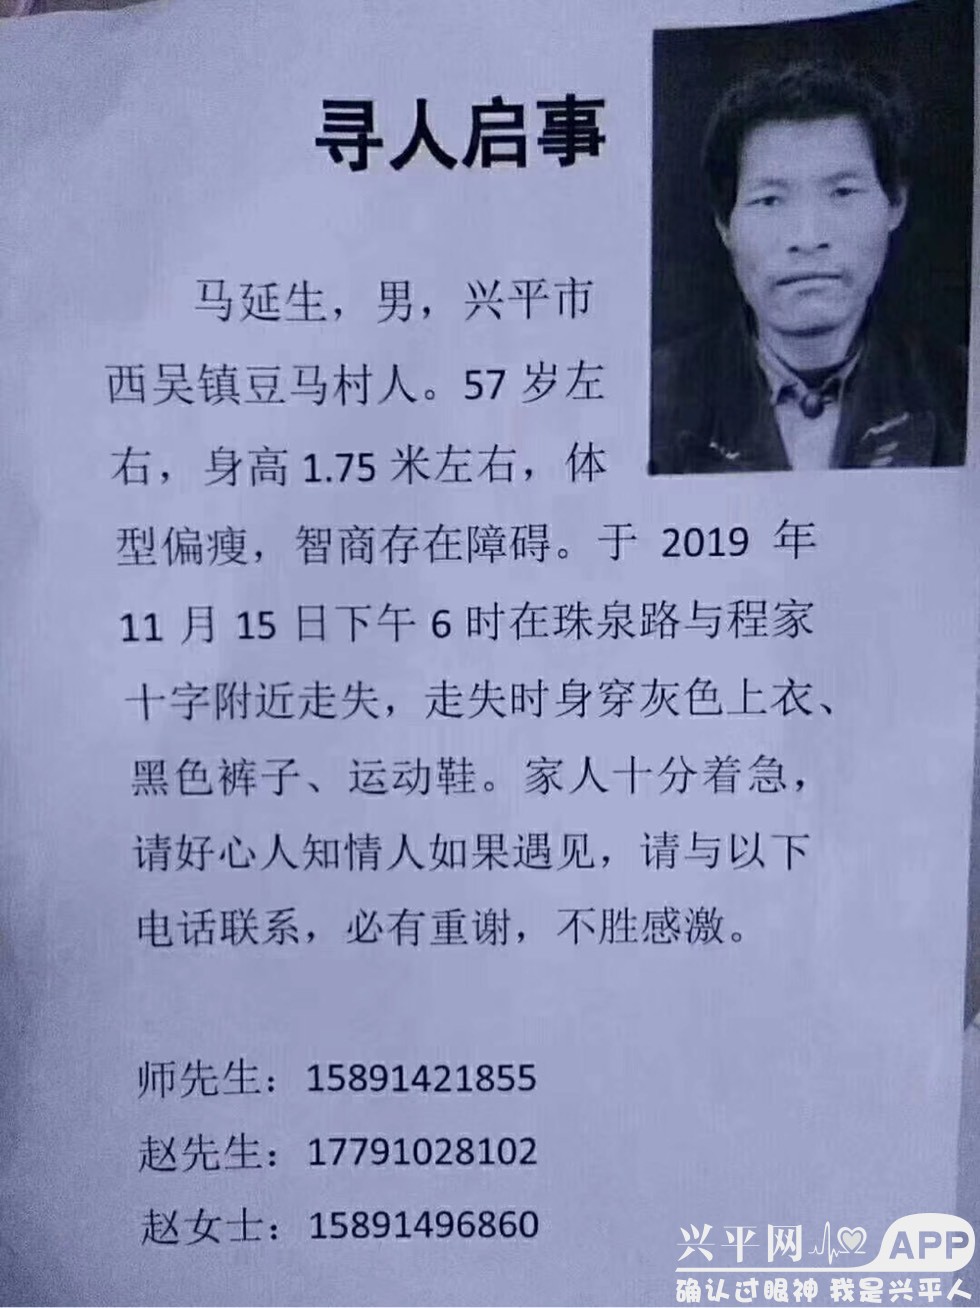 寻人启事
马延生，男，兴平市
西吴镇豆马村人。57 岁左
右，身高 1.75 米左右，体
型偏瘦，智商存在障碍。于 2019 年
11 月 15 日下午 6 时在珠泉路与程家
十字附近走失，走失时身穿灰色上衣、
黑色裤子、运动鞋。家人十分着急，
请好心人知情人如果遇见，请与以下
电话联系，必有重谢，不胜感激。
师先生：15891421855
赵先生：17791028102
赵女士：15891496860
兴平网 APP
确认过眼神 我是兴平人